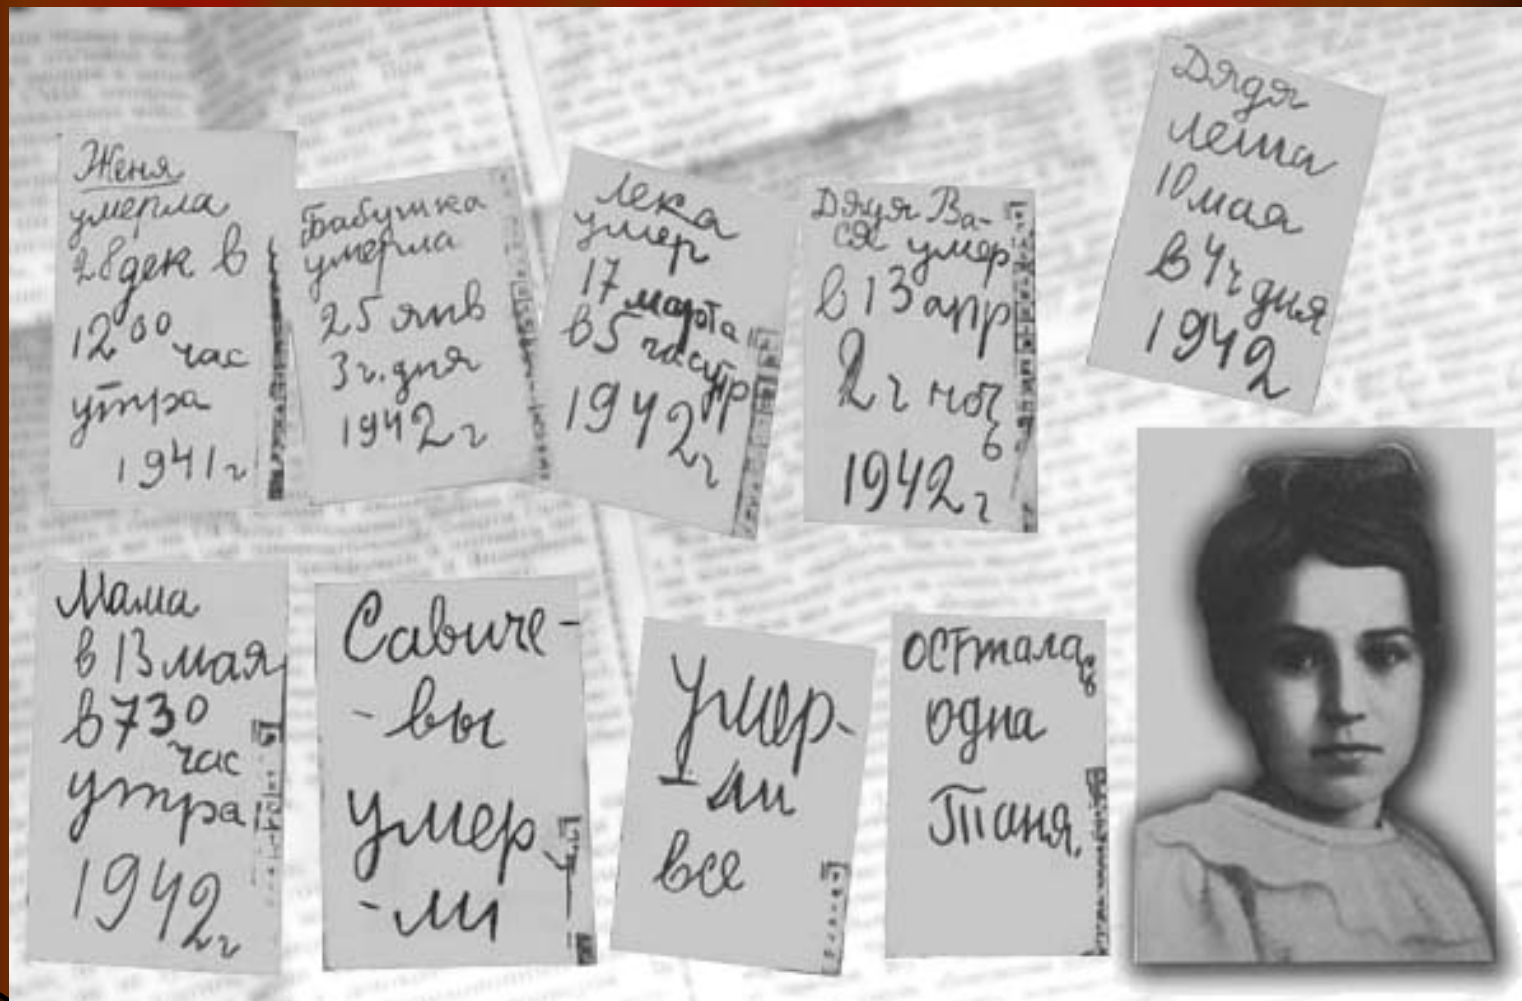 Женя
умерла
28 дек в
12 00 час
утра
1941 г
Бабушка
умерла
25 янв
3 ч. дня
1942 г
Лека
умер
17 марта
в 5 час утр
1942 г
Дядя Ва-
ся умер
в 13 апр
2 ч ноч
ь
1942 г
Дядя
Леша
10 мая
в 4 ч дня
1942
Мама
в 13 мая
в 7 30
час
утра
1942 г
Савиче-
- вы
умер
- ли
Умер-
- ли
все
Осталась
одна
Таня.